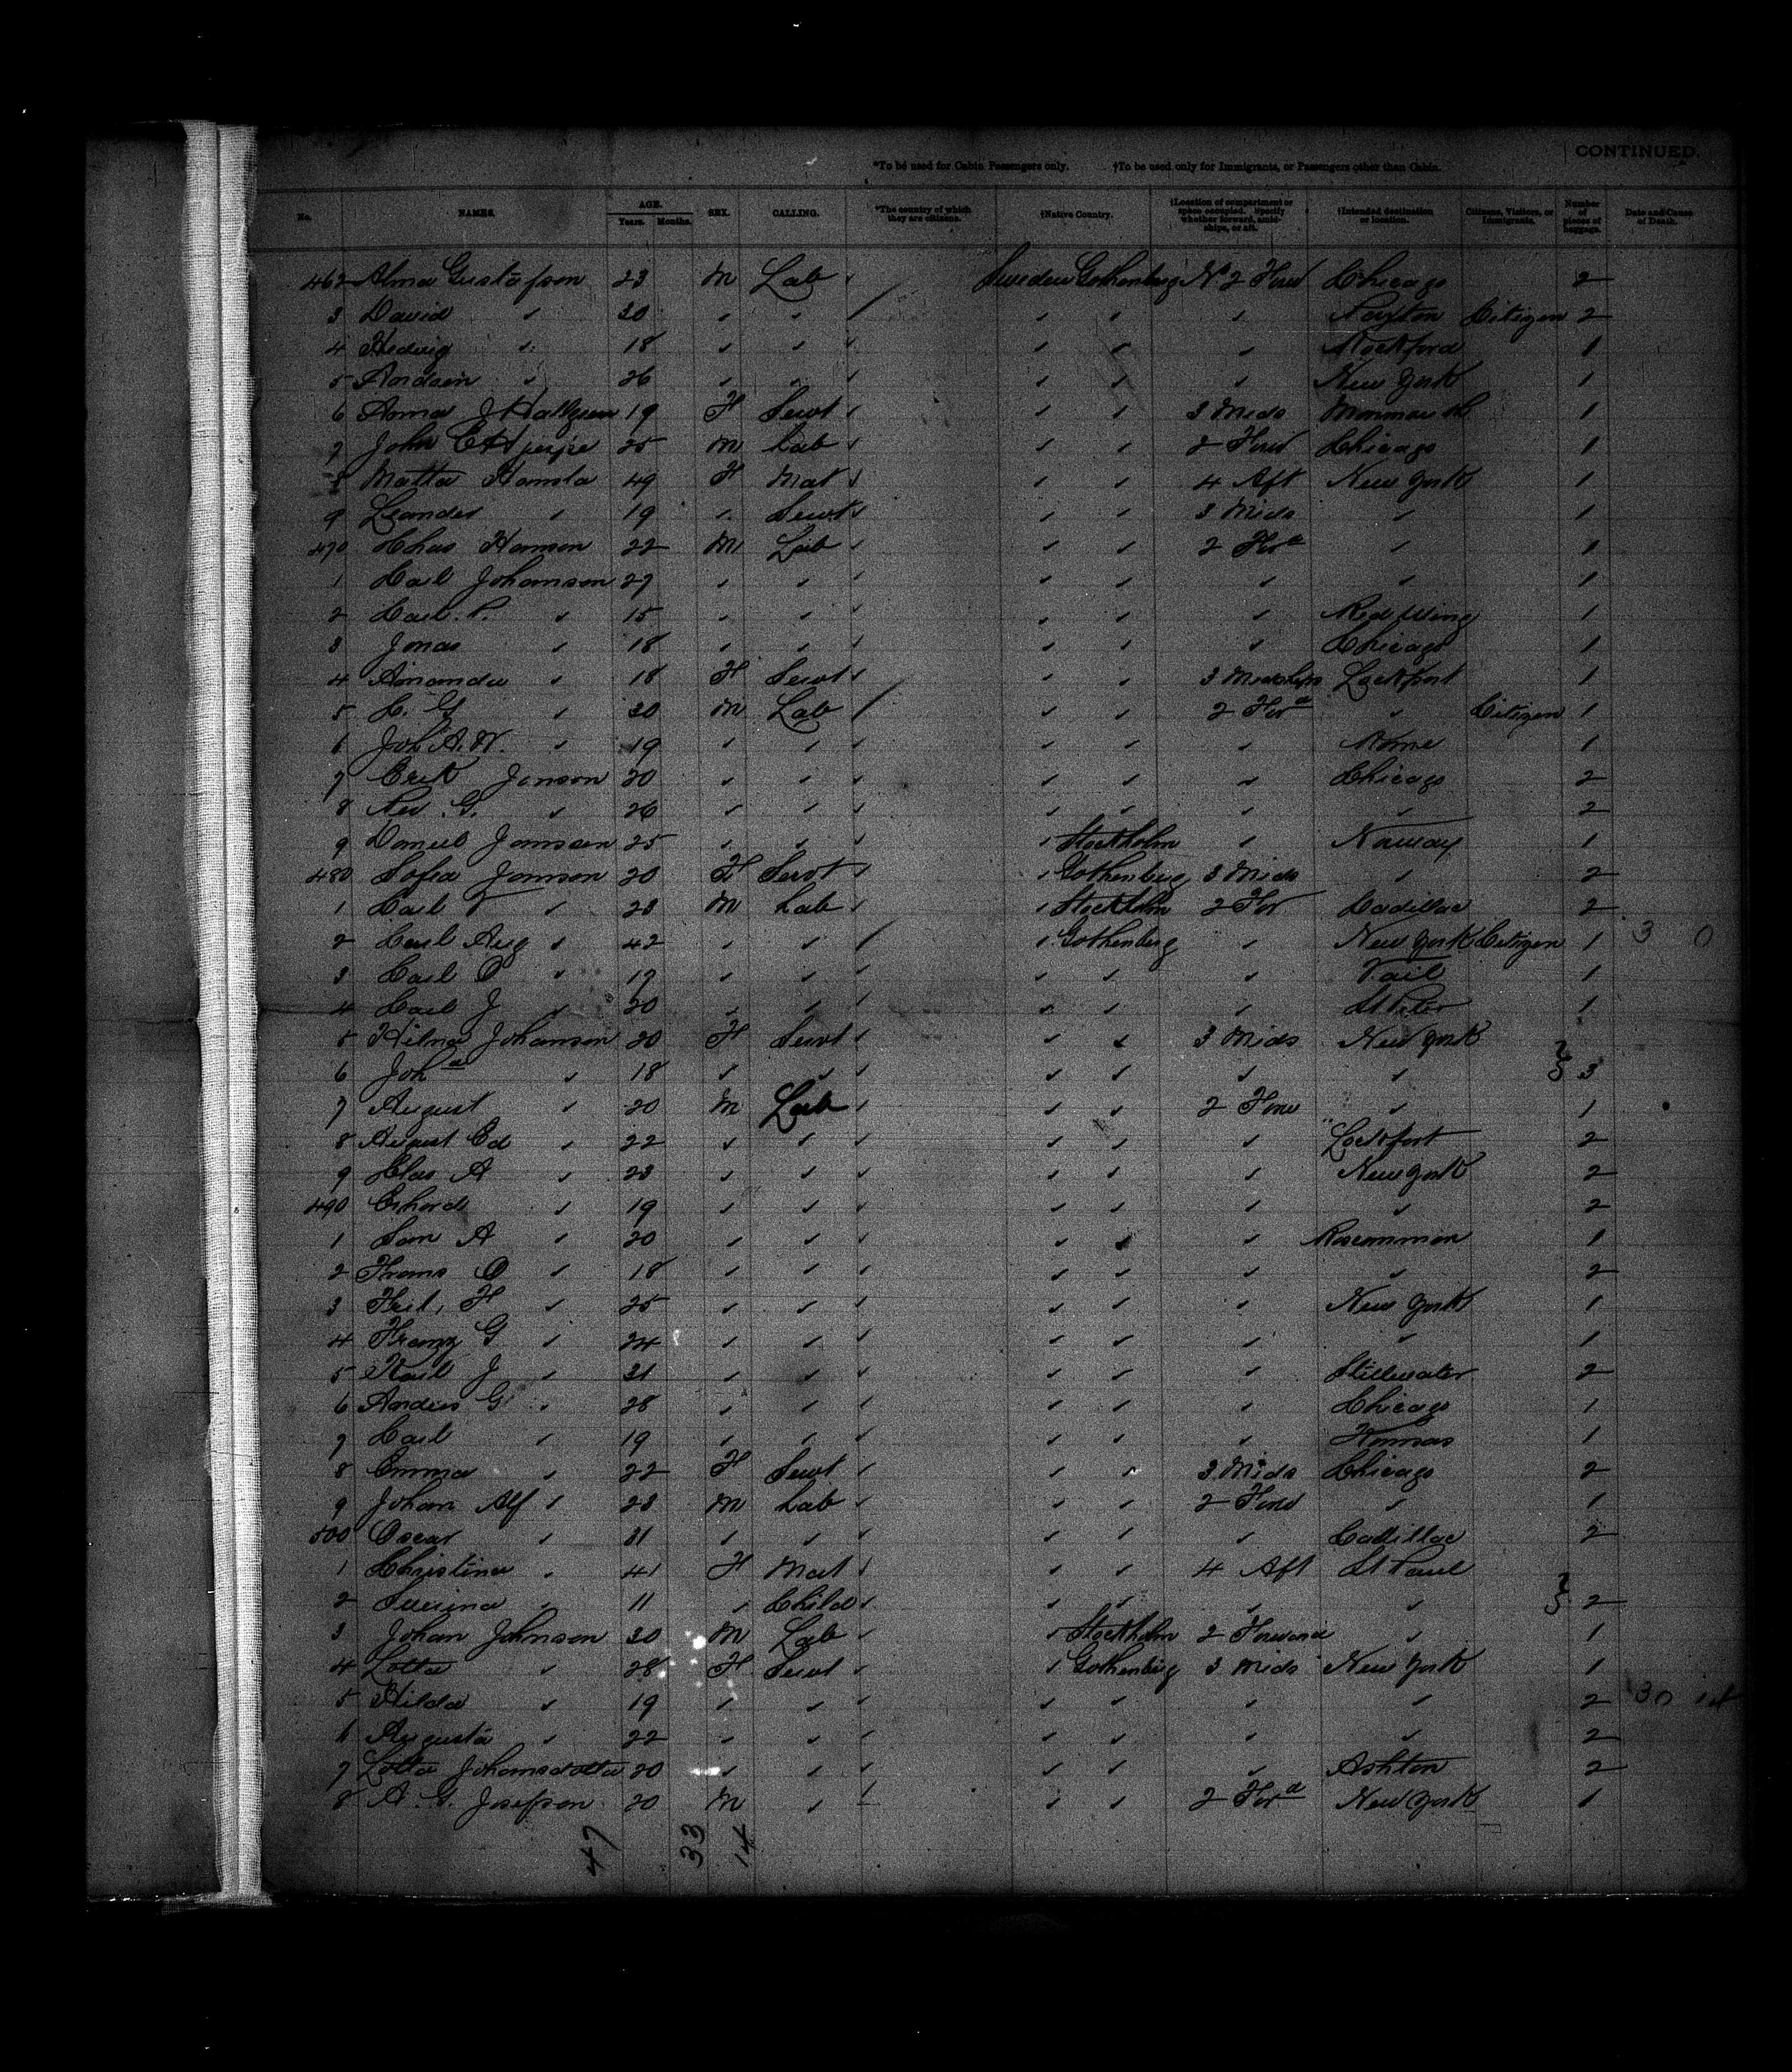 CONTINUED.
*To be used for Cabin Passengers only. †To be used only for Immigrants, or Passengers other than Cabin.
No. NAMES. AGE. Years. Months. SEX. CALLING. *The country of which they are citizens. †Native Country. †Location of compartment or space occupied. Specify whether forward, amidships, or aft. †Intended destination or location. Citizens, Visitors, or Immigrants. Number of pieces of baggage. Date and Cause of Death.
462 Alma Gustafson 23 M Lab Sweden Gothenburg No 2 Forw Chicago 2
3 David " 30 " " " " " Citizen 2
4 Hedvig " 18 " " " " " Rockford 1
5 " 26 " " " " " New York 1
6 Anna J Hallgren 19 F Servt " " 3 Mids 1
7 John 25 M Lab " " 2 Forw Chicago 1
8 Matta 49 F Mat " " 4 Aft New York 1
9 Leander " 19 " Servt " " 3 Mids " 1
470 Chas Hanson 22 M Lab " " 2 For " 1
1 Carl Johanson 27 " " " " " " 1
2 Carl P. " 15 " " " " " Red Wing 1
3 Jonas " 18 " " " " " Chicago 1
4 Amanda " 18 F Servt " " 3 Midships Lockport 1
5 C. G " 30 M Lab " " 2 Ford " Citizen 1
6 Joh A. W. " 19 " " " " " Rome 1
7 Erik Jonson 20 " " " " " Chicago 2
8 G. " 26 " " " " " " 2
9 Daniel Jansson 25 " " " Stockholm " 1
480 Sofia Jonson 20 F Servt " Gothenburg 3 Mids " 2
1 Carl V " 23 M Lab " Stockholm 2 For Cadillac 2
2 Carl Aug " 42 " " " Gothenburg " New York Citizen 1 3 0
3 Carl O " 19 " " " " " Vail 1
4 Carl J " 20 " " " " " St Peter 1
5 Hilma Johanson 20 F Servt " " 3 Mids New York
6 Joha " 18 " " " " " " 3
7 August " 20 M Lab " " 2 Forw " 1
8 August Ed " 22 " " " " " Lockport 2
9 Clas A " 23 " " " " " New York 2
490 Erhard " 19 " " " " " " 2
1 A " 20 " " " " " Roscommon 1
2 Frans O " 18 " " " " " " 2
3 H " 25 " " " " " New York 1
4 Franz G " 24 " " " " " " 1
5 Karl J " 31 " " " " " Stillwater 2
6 Anders G " 28 " " " " " Chicago 1
7 Carl " 19 " " " " " Kansas 1
8 Emma " 22 F Servt " " 3 Mids Chicago 2
9 Johan Alf " 23 M Lab " " 2 Forw " 1
500 Oscar " 31 " " " " " Cadillac 2
1 Christina " 41 F Mat " " 4 Aft St Paul
2 " 11 " Child " " " " 2
3 Johan Johnson 30 M Lab " Stockholm 2 Forward " 1
4 Lotta " 28 F Servt " Gothenburg 3 Mids New York 1
5 Hilda " 19 " " " " " " 2 30
6 Augusta " 22 " " " " " " 2
7 Lotta Johansdotter 20 " " " " " Ashton 2
8 A. G. Josefson 20 M " " " 2 Ford New York 1
47 33 14